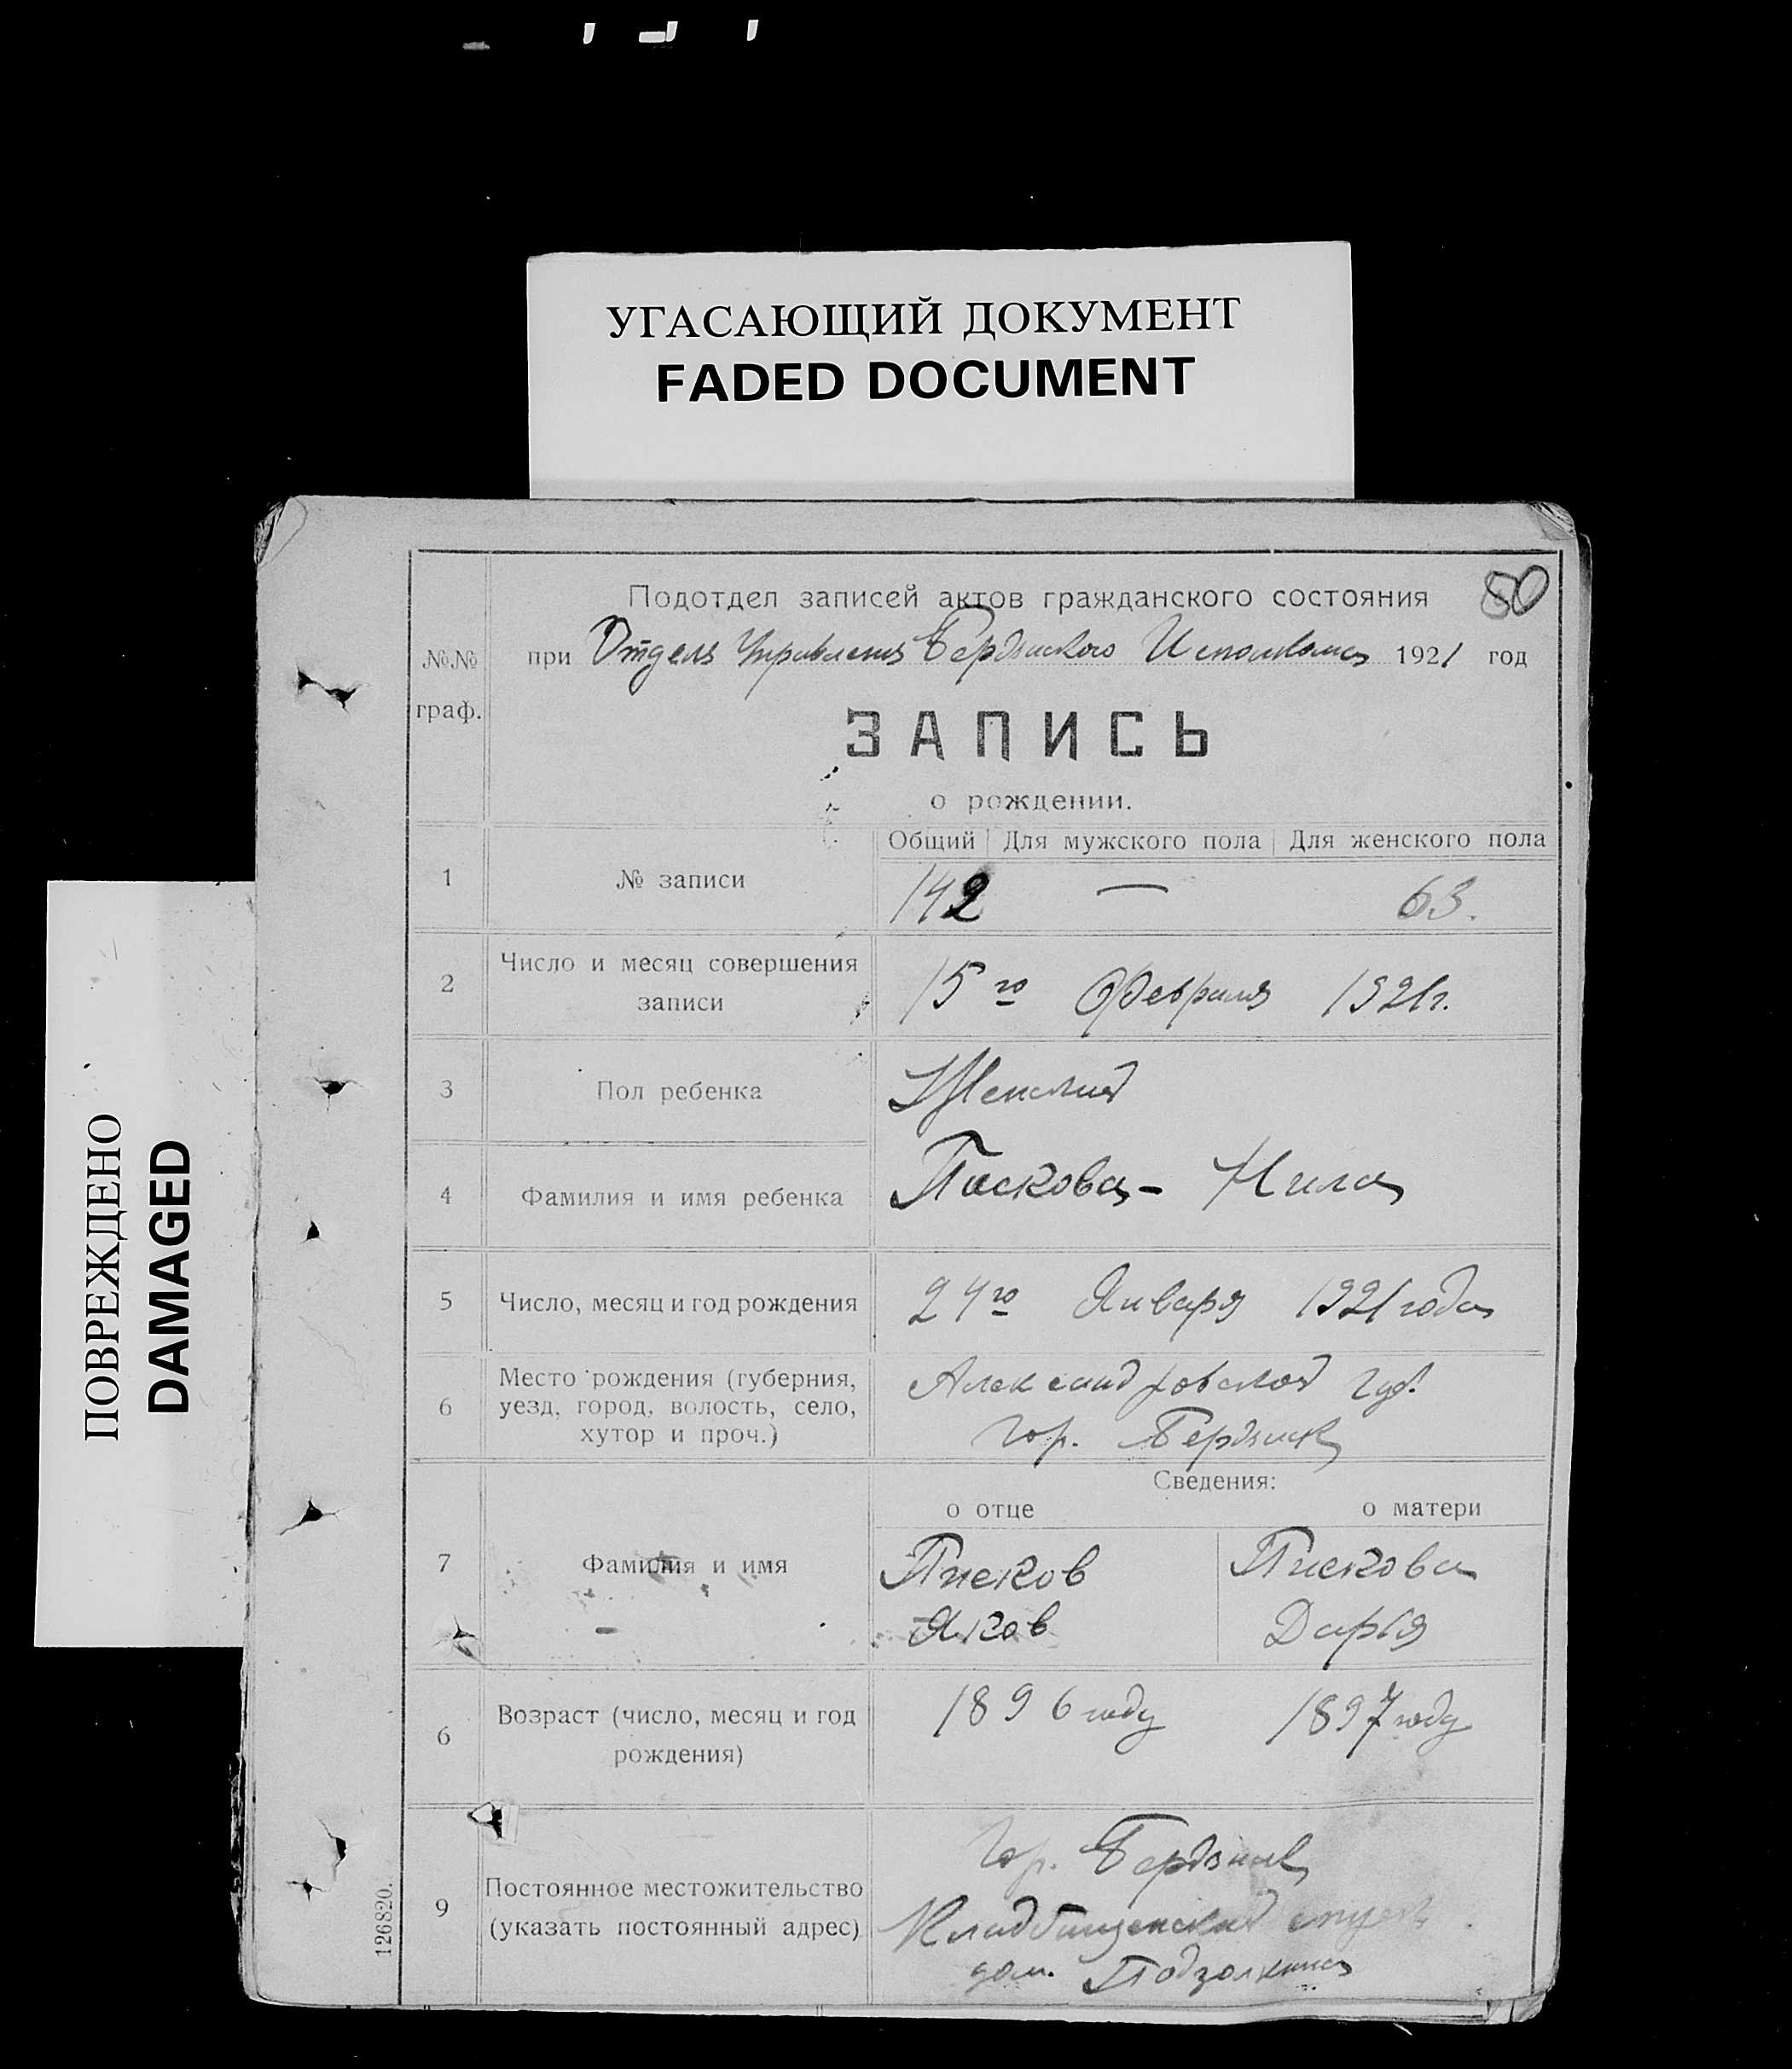 УГАСАЮЩИЙ ДОКУМЕНТ
FADED DOCUMENT
ПОВРЕЖДЕНО
DAMAGED
50
Подотдел записей актов гражданского состояния
№№ граф.
при Отделе Управления Бердянского Исполкома 1921 год
ЗАПИСЬ
о рождении.
Общий Для мужского пола Для женского пола
1 № записи 142 — 63.
2 Число и месяц совершения записи 15го Февраля 1921г.
3 Пол ребенка Женский
4 Фамилия и имя ребенка Пискова - Нила
5 Число, месяц и год рождения 24го Января 1921 года
6 Место рождения (губерния, уезд, город, волость, село, хутор и проч.) Александровской губ.
гор. Бердянск
Сведения:
о отце о матери
7 Фамилия и имя Писков Пискова
Яков Дарья
6 Возраст (число, месяц и год рождения) 1896 году 1897 году
9 Постоянное местожительство (указать постоянный адрес) Гор. Бердянск
Кладбищенская
дом. Подзолкина
126820.